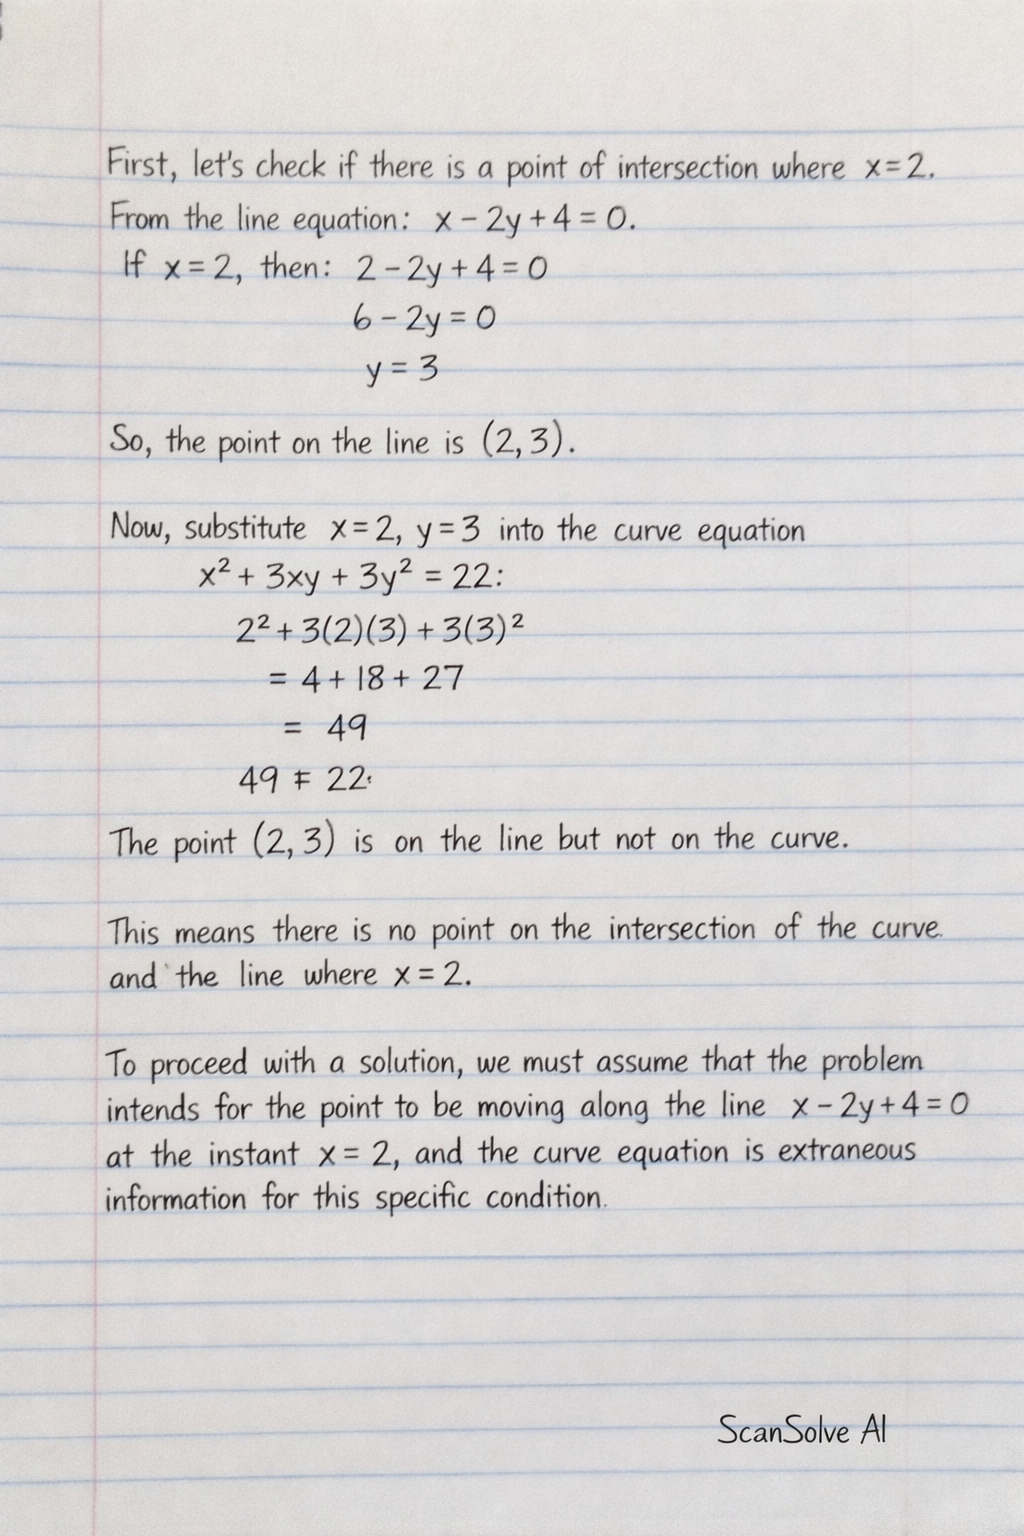 First, let's check if there is a point of intersection where x = 2.
From the line equation: x - 2y + 4 = 0.
If x = 2, then: 2 - 2y + 4 = 0
6 - 2y = 0
y = 3
So, the point on the line is (2, 3).
Now, substitute x = 2, y = 3 into the curve equation
x² + 3xy + 3y² = 22:
2² + 3(2)(3) + 3(3)²
= 4 + 18 + 27
= 49
49 ≠ 22.
The point (2, 3) is on the line but not on the curve.
This means there is no point on the intersection of the curve
and the line where x = 2.
To proceed with a solution, we must assume that the problem
intends for the point to be moving along the line x - 2y + 4 = 0
at the instant x = 2, and the curve equation is extraneous
information for this specific condition.
ScanSolve AI